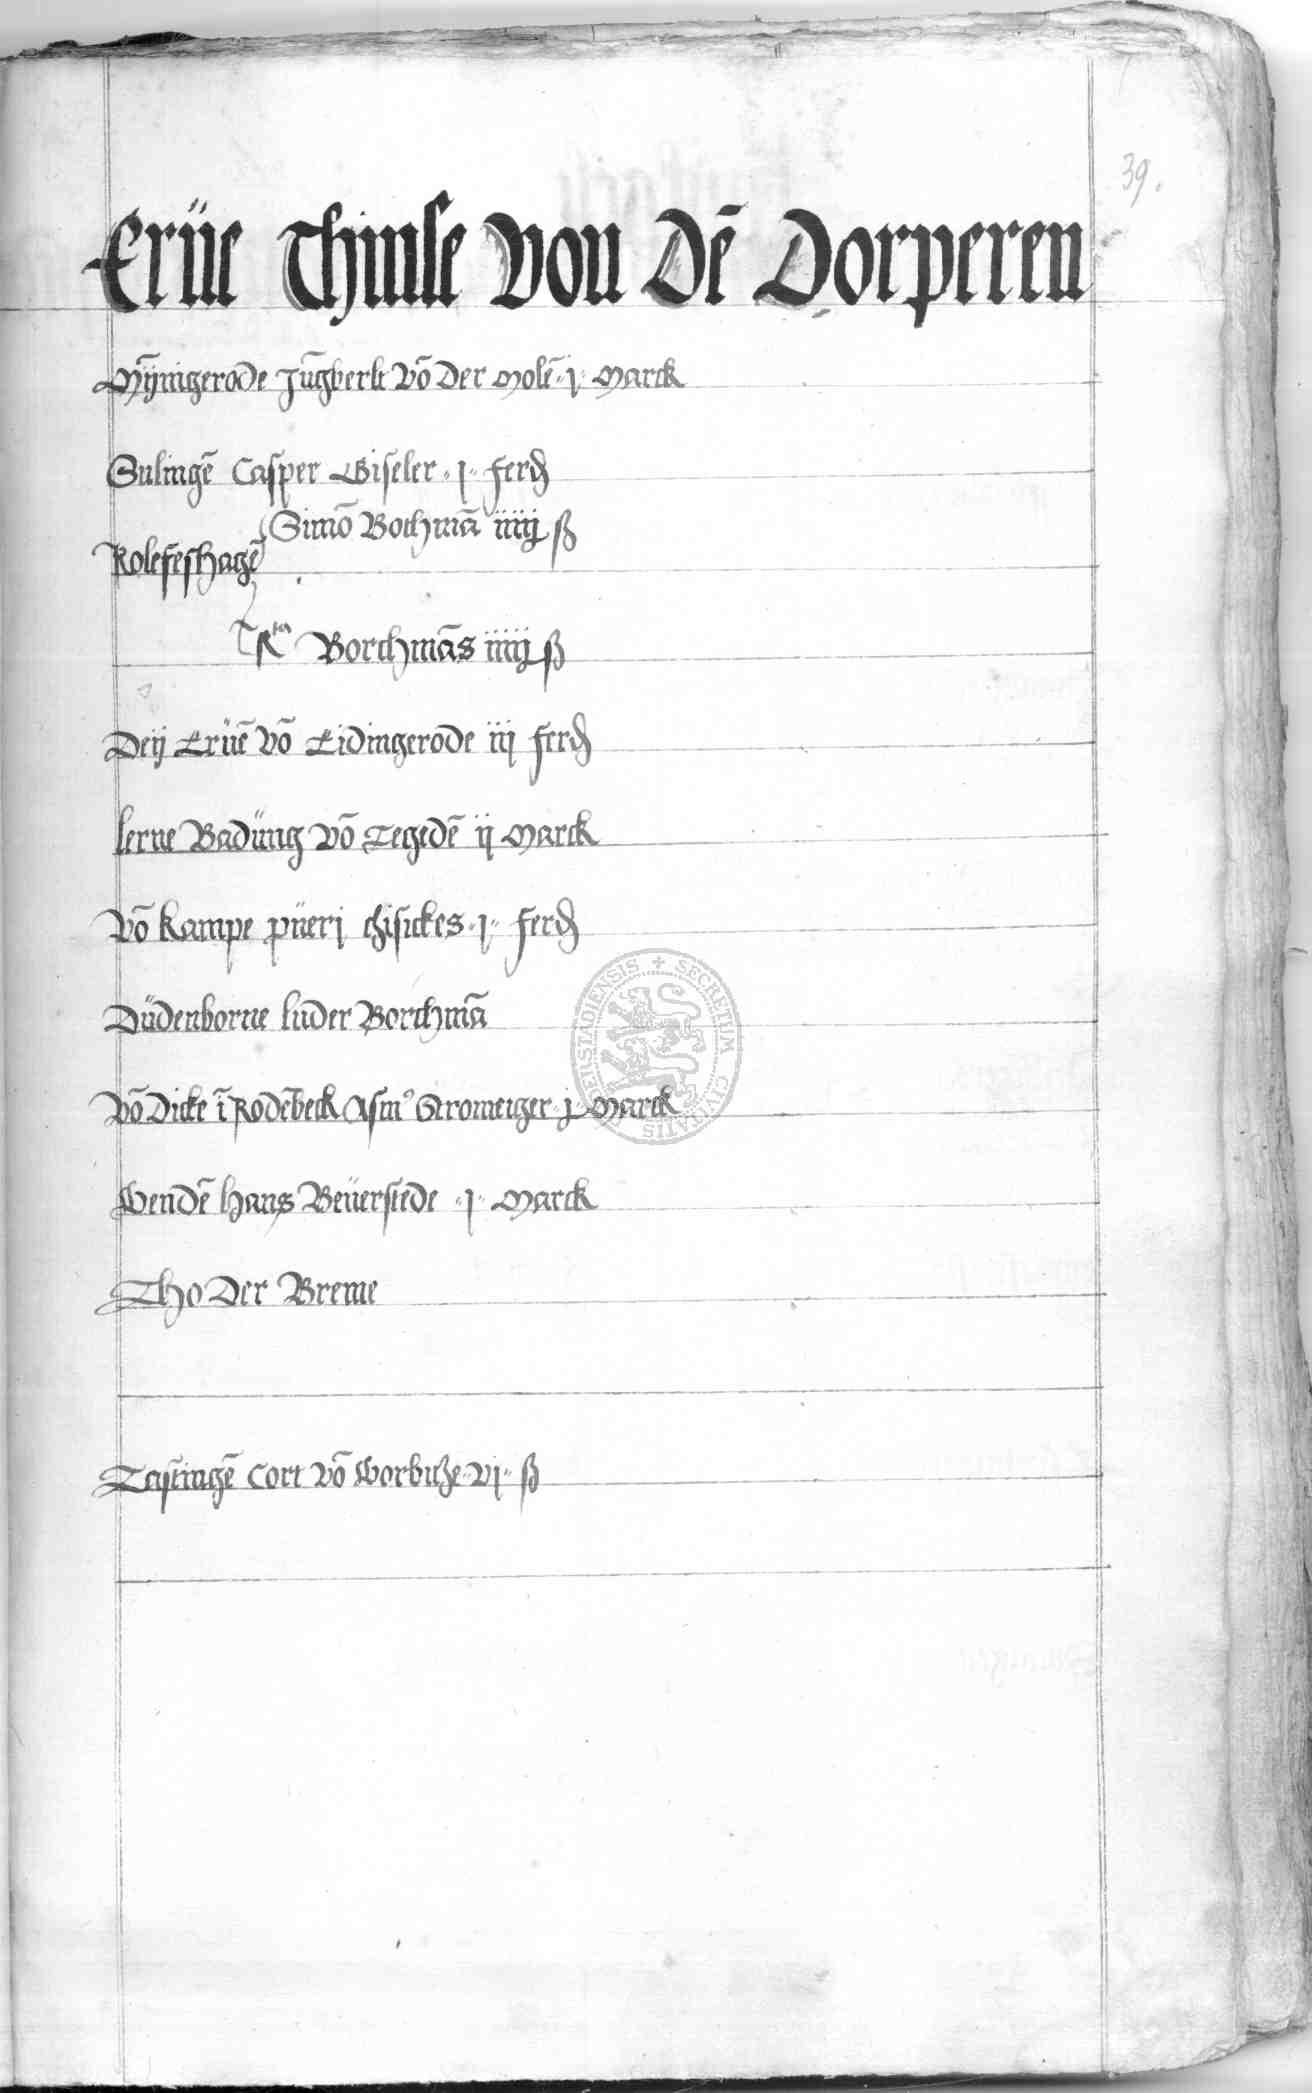 39.
Erüe Thinse Von Dē Dorperen
Mÿnigerode Jūgherh Vō Der Molē · j · Marck
Sulingē Casper Giseler · j · ferd
Simō Bochmā iiiij ß
Rolefeshagē
Rta Borchmās iiiij ß
Deij Erüē vō Eidingerode iij ferd
lerne Badüng vō Tegedē ij Marck
Vō Kampe püeri Thisickes · j · ferd
Düdenborne luder Borchmā
Vō Dicke ī Rodēbeck Asm⁹ Stromeiger · j · Marck
Wendē hans Beüerstede · j · Marck
Tho Der Breme
Teistingē Cort vō Worbitze · vj · ß
SECRETUM CIVITATIS DUDERSTADIENSIS